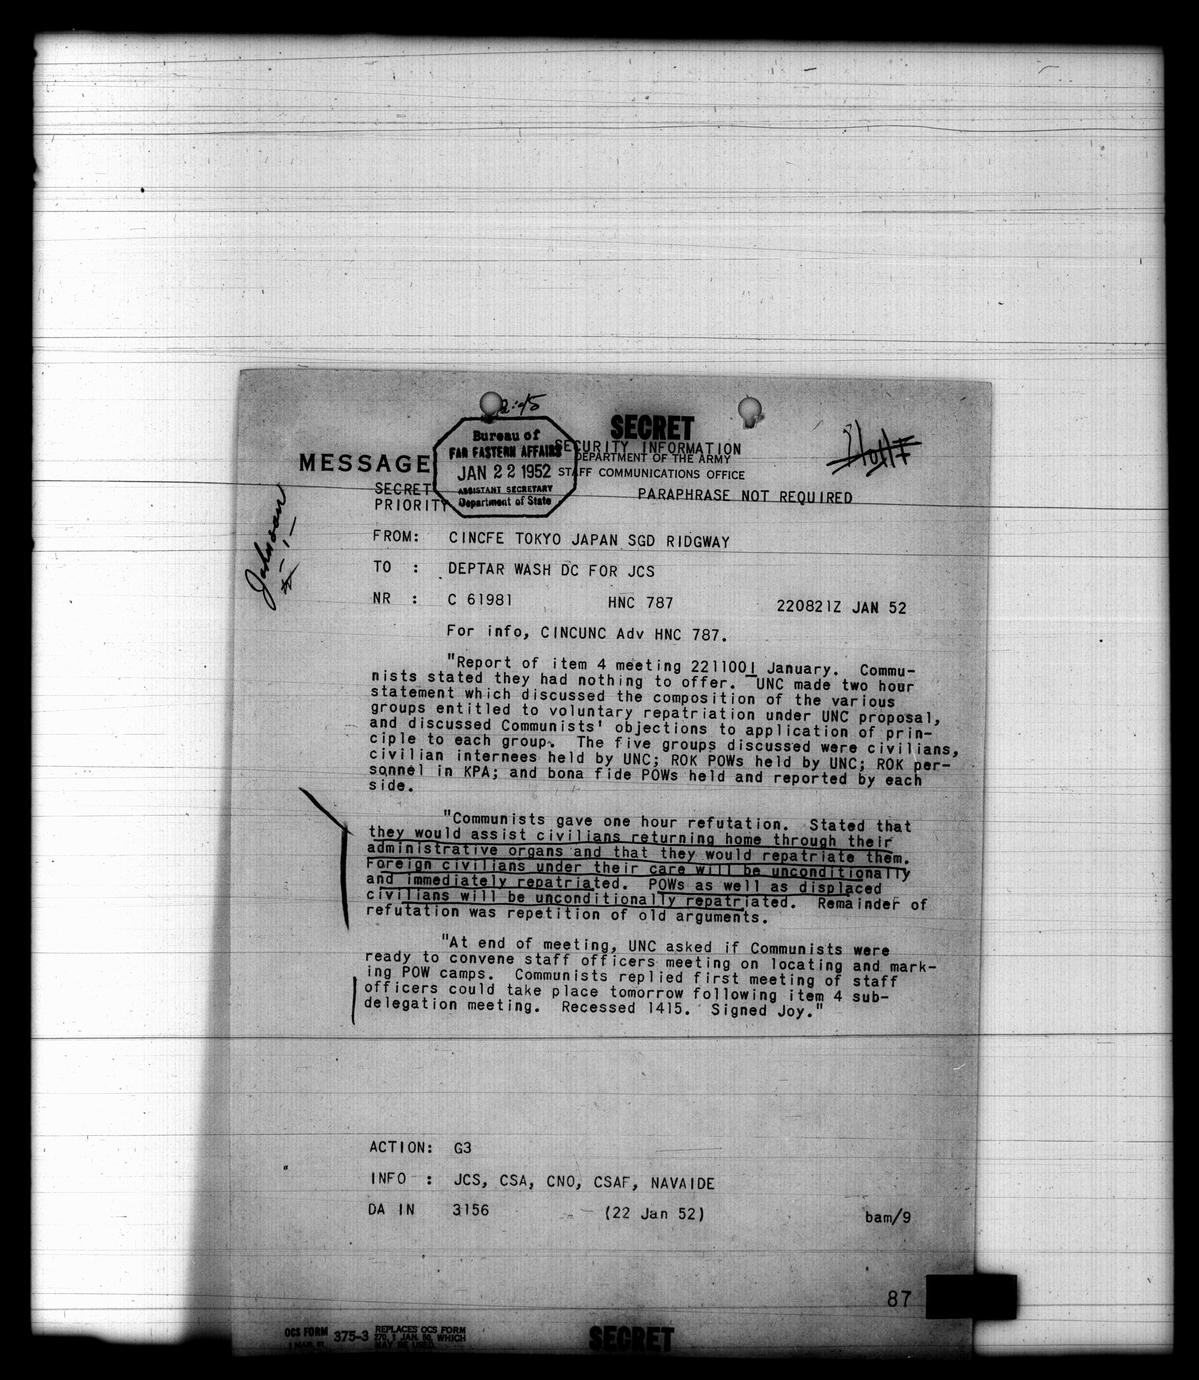 2:45
SECRET
SECURITY INFORMATION
DEPARTMENT OF THE ARMY
STAFF COMMUNICATIONS OFFICE
MESSAGE
Bureau of
FAR EASTERN AFFAIRS
JAN 22 1952
ASSISTANT SECRETARY
Department of State
SECRET
PRIORITY
PARAPHRASE NOT REQUIRED
Johnson
FROM: CINCFE TOKYO JAPAN SGD RIDGWAY
TO : DEPTAR WASH DC FOR JCS
NR : C 61981 HNC 787 220821Z JAN 52
For info, CINCUNC Adv HNC 787.
"Report of item 4 meeting 221100I January. Commu-
nists stated they had nothing to offer. UNC made two hour
statement which discussed the composition of the various
groups entitled to voluntary repatriation under UNC proposal,
and discussed Communists' objections to application of prin-
ciple to each group. The five groups discussed were civilians,
civilian internees held by UNC; ROK POWs held by UNC; ROK per-
sonnel in KPA; and bona fide POWs held and reported by each
side.
"Communists gave one hour refutation. Stated that
they would assist civilians returning home through their
administrative organs and that they would repatriate them.
Foreign civilians under their care will be unconditionally
and immediately repatriated. POWs as well as displaced
civilians will be unconditionally repatriated. Remainder of
refutation was repetition of old arguments.
"At end of meeting, UNC asked if Communists were
ready to convene staff officers meeting on locating and mark-
ing POW camps. Communists replied first meeting of staff
officers could take place tomorrow following item 4 sub-
delegation meeting. Recessed 1415. Signed Joy."
ACTION: G3
INFO : JCS, CSA, CNO, CSAF, NAVAIDE
DA IN 3156 (22 Jan 52) bam/9
87
OCS FORM 375-3 REPLACES OCS FORM
270, 1 JAN. 50, WHICH
MAY BE USED.
SECRET